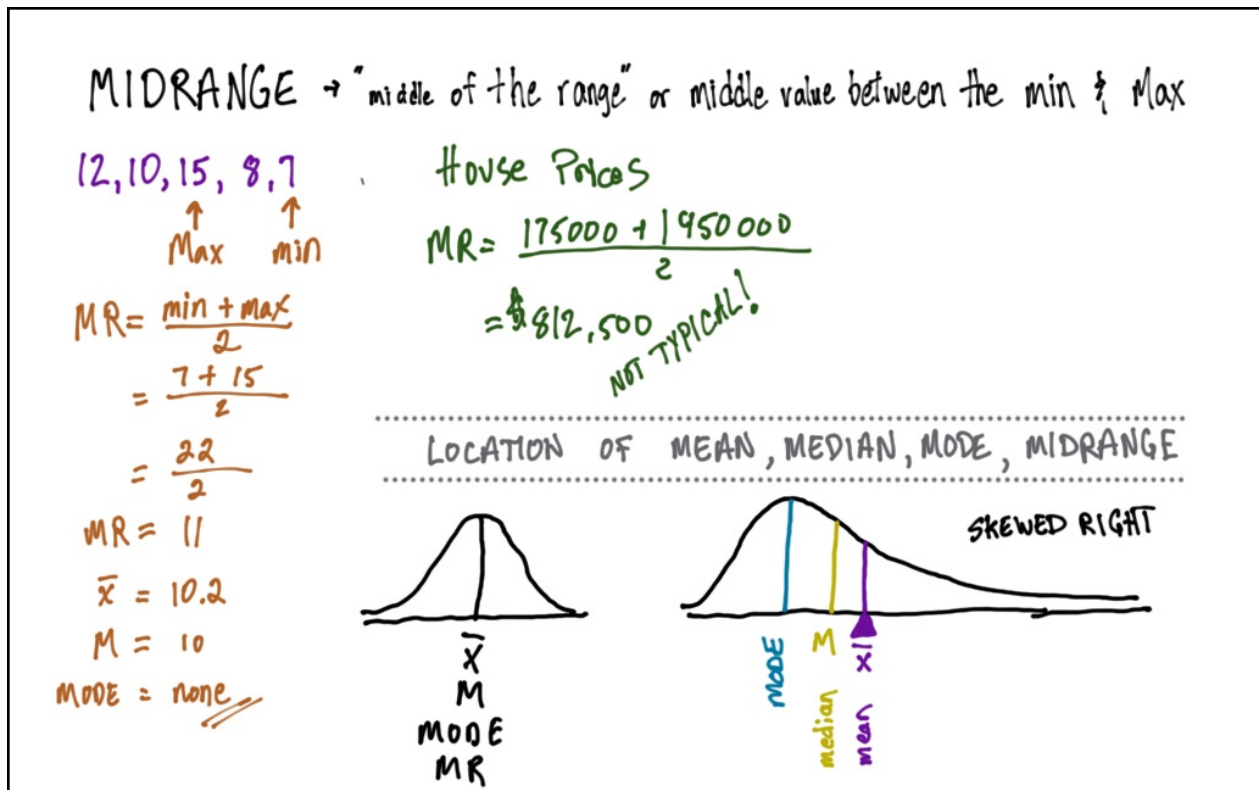 MIDRANGE → "middle of the range" or middle value between the min & Max
12, 10, 15, 8, 7
↑ ↑
Max min
MR = min + max / 2
= 7 + 15 / 2
= 22 / 2
MR = 11
x̄ = 10.2
M = 10
MODE = none
House Prices
MR = 175000 + 1950000 / 2
= $812,500
NOT TYPICAL!
LOCATION OF MEAN, MEDIAN, MODE, MIDRANGE
x̄
M
MODE
MR
SKEWED RIGHT
MODE
M
median
x̄
mean